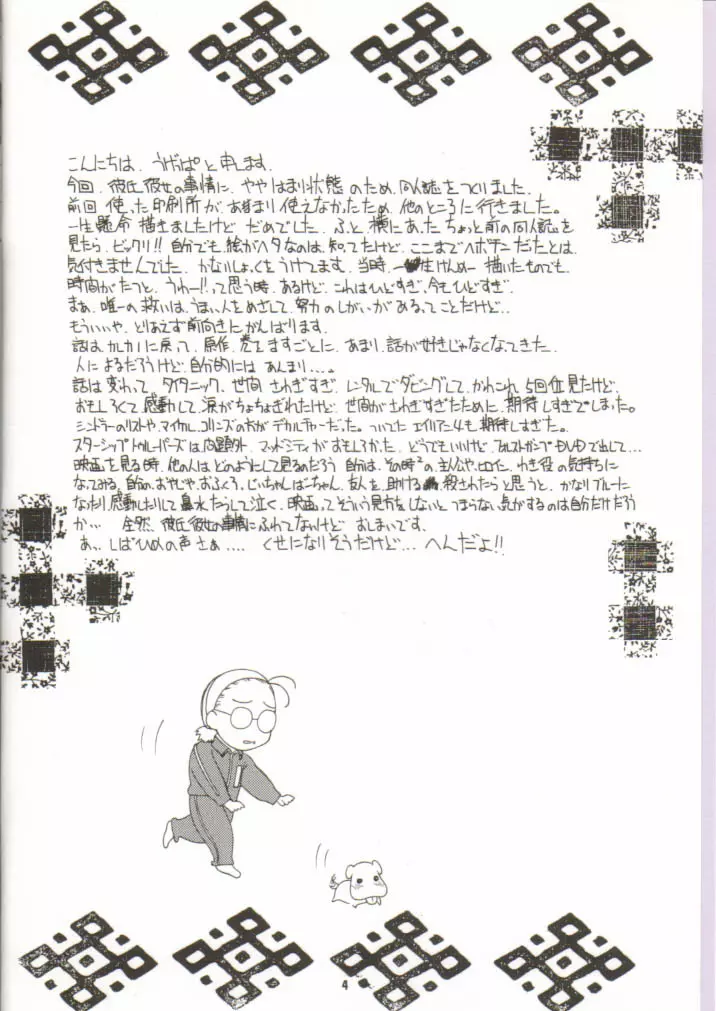 こんにちは、うげっぱと申します。
今回、彼氏彼女の事情に、ややはまり状態のため、同人誌をつくりました。
前回使った印刷所が、あまり使えなかったため、他のところに行きました。
一生懸命描きましたけど、だめでした。ふと横にあったちょっと前の同人誌を
見たら、ビックリ!!自分でも絵がヘタなのは、知ってたけど、ここまでヘボチンだったとは、
気付きませんでした。かないしょっくをうけてます。当時、一生けんめー描いたものでも、
時間がたつと、うわー!!って思う時、あるけど、これはひどすぎ、今もひどすぎ。
まあ、唯一の救いは、うまい人をめざして、努力のしがいがあるってことだけど…
もういいや、とりあえず前向きにがんばります。
話はカレカノに戻って、原作、巻をますごとに、あまり、話が好きじゃなくなってきた。
人によるだろうけど、自分的には、あんまり……。
話は変わって、タイタニック、世間さわぎすぎ、レンタルでダビングして、かれこれ5回位見たけど、
おもしろくて感動して、涙がちょちょぎれたけど、世間がさわぎすぎたために、期待しすぎてしまった。
シンドラーのリストや、マイケル・コリンズの方がデカルチャーだった。ついでにエイリアン4も期待しすぎた。
スターシップトゥルーパーズは問題外、マッドシティがおもしろかった、どうでもいいけど、フォレストガンプもDVDで出して…
映画を見る時、他の人は、どのようにして見るのだろう、自分は、その時々の主人公や、ヒロイン、わき役の気持ちに
なってみる、自分の、おやじや、おふくろ、じいちゃん、ばーちゃん、友人を、助ける、殺されたらと思うと、かなりブルーに
なったり、感動したりして鼻水たらして泣く、映画ってそういう見方をしないと、つまらない気がするのは自分だけだろう
か… 全然、彼氏彼女の事情にふれてないけど、おしまいです。
あっ、しばひめの声さぁ…… くせになりそうだけど… へんだよ!!
4